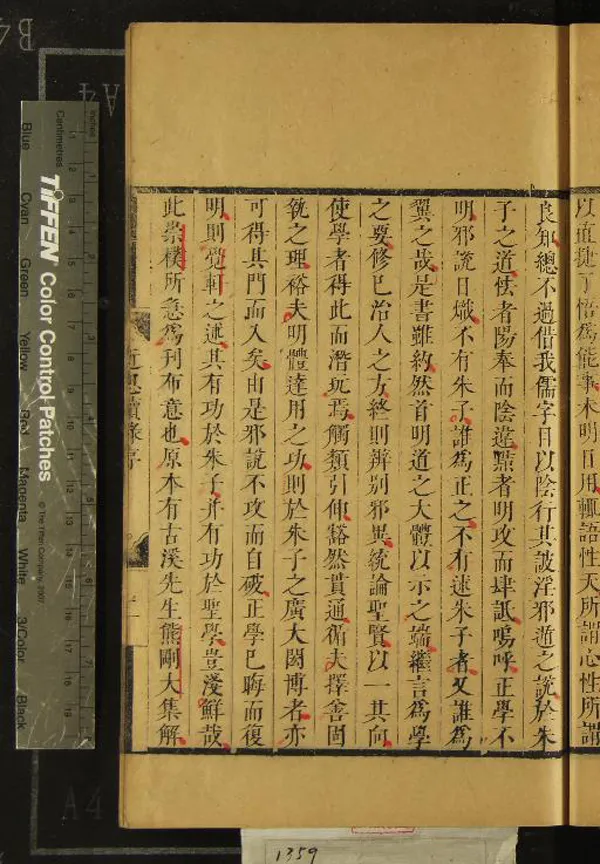 以直捷了悟爲能事未明日用輒語性天所謂心性所謂
良知總不過借我儒字目以陰行其詖淫邪遁之說於朱
子之道怯者陽奉而陰違黠者明攻而肆詆嗚呼正學不
明邪說日熾不有朱子誰爲正之不有述朱子者又誰爲
翼之哉是書雖約然首明道之大體以示之端繼言爲學
之要修已治人之方終則辨别邪異統論聖賢以一其向
使學者得此而潛玩焉觸類引伸豁然貫通循夫擇善固
執之理裕夫明體達用之功則於朱子之廣大閎博者亦
可得其門而入矣由是邪說不攻而自破正學已晦而復
明則覺軒之述其有功於朱子并有功於聖學豈淺鮮哉
此崇樸所急爲刊布意也原本有古溪先生熊剛大集解
近思續錄序
二
Inches
Centimetres
TIFFEN Color Control Patches
© The Tiffen Company, 2007
Blue
Cyan
Green
Yellow
Red
Magenta
White
3/Color
Black
B4
A4
A4
1359